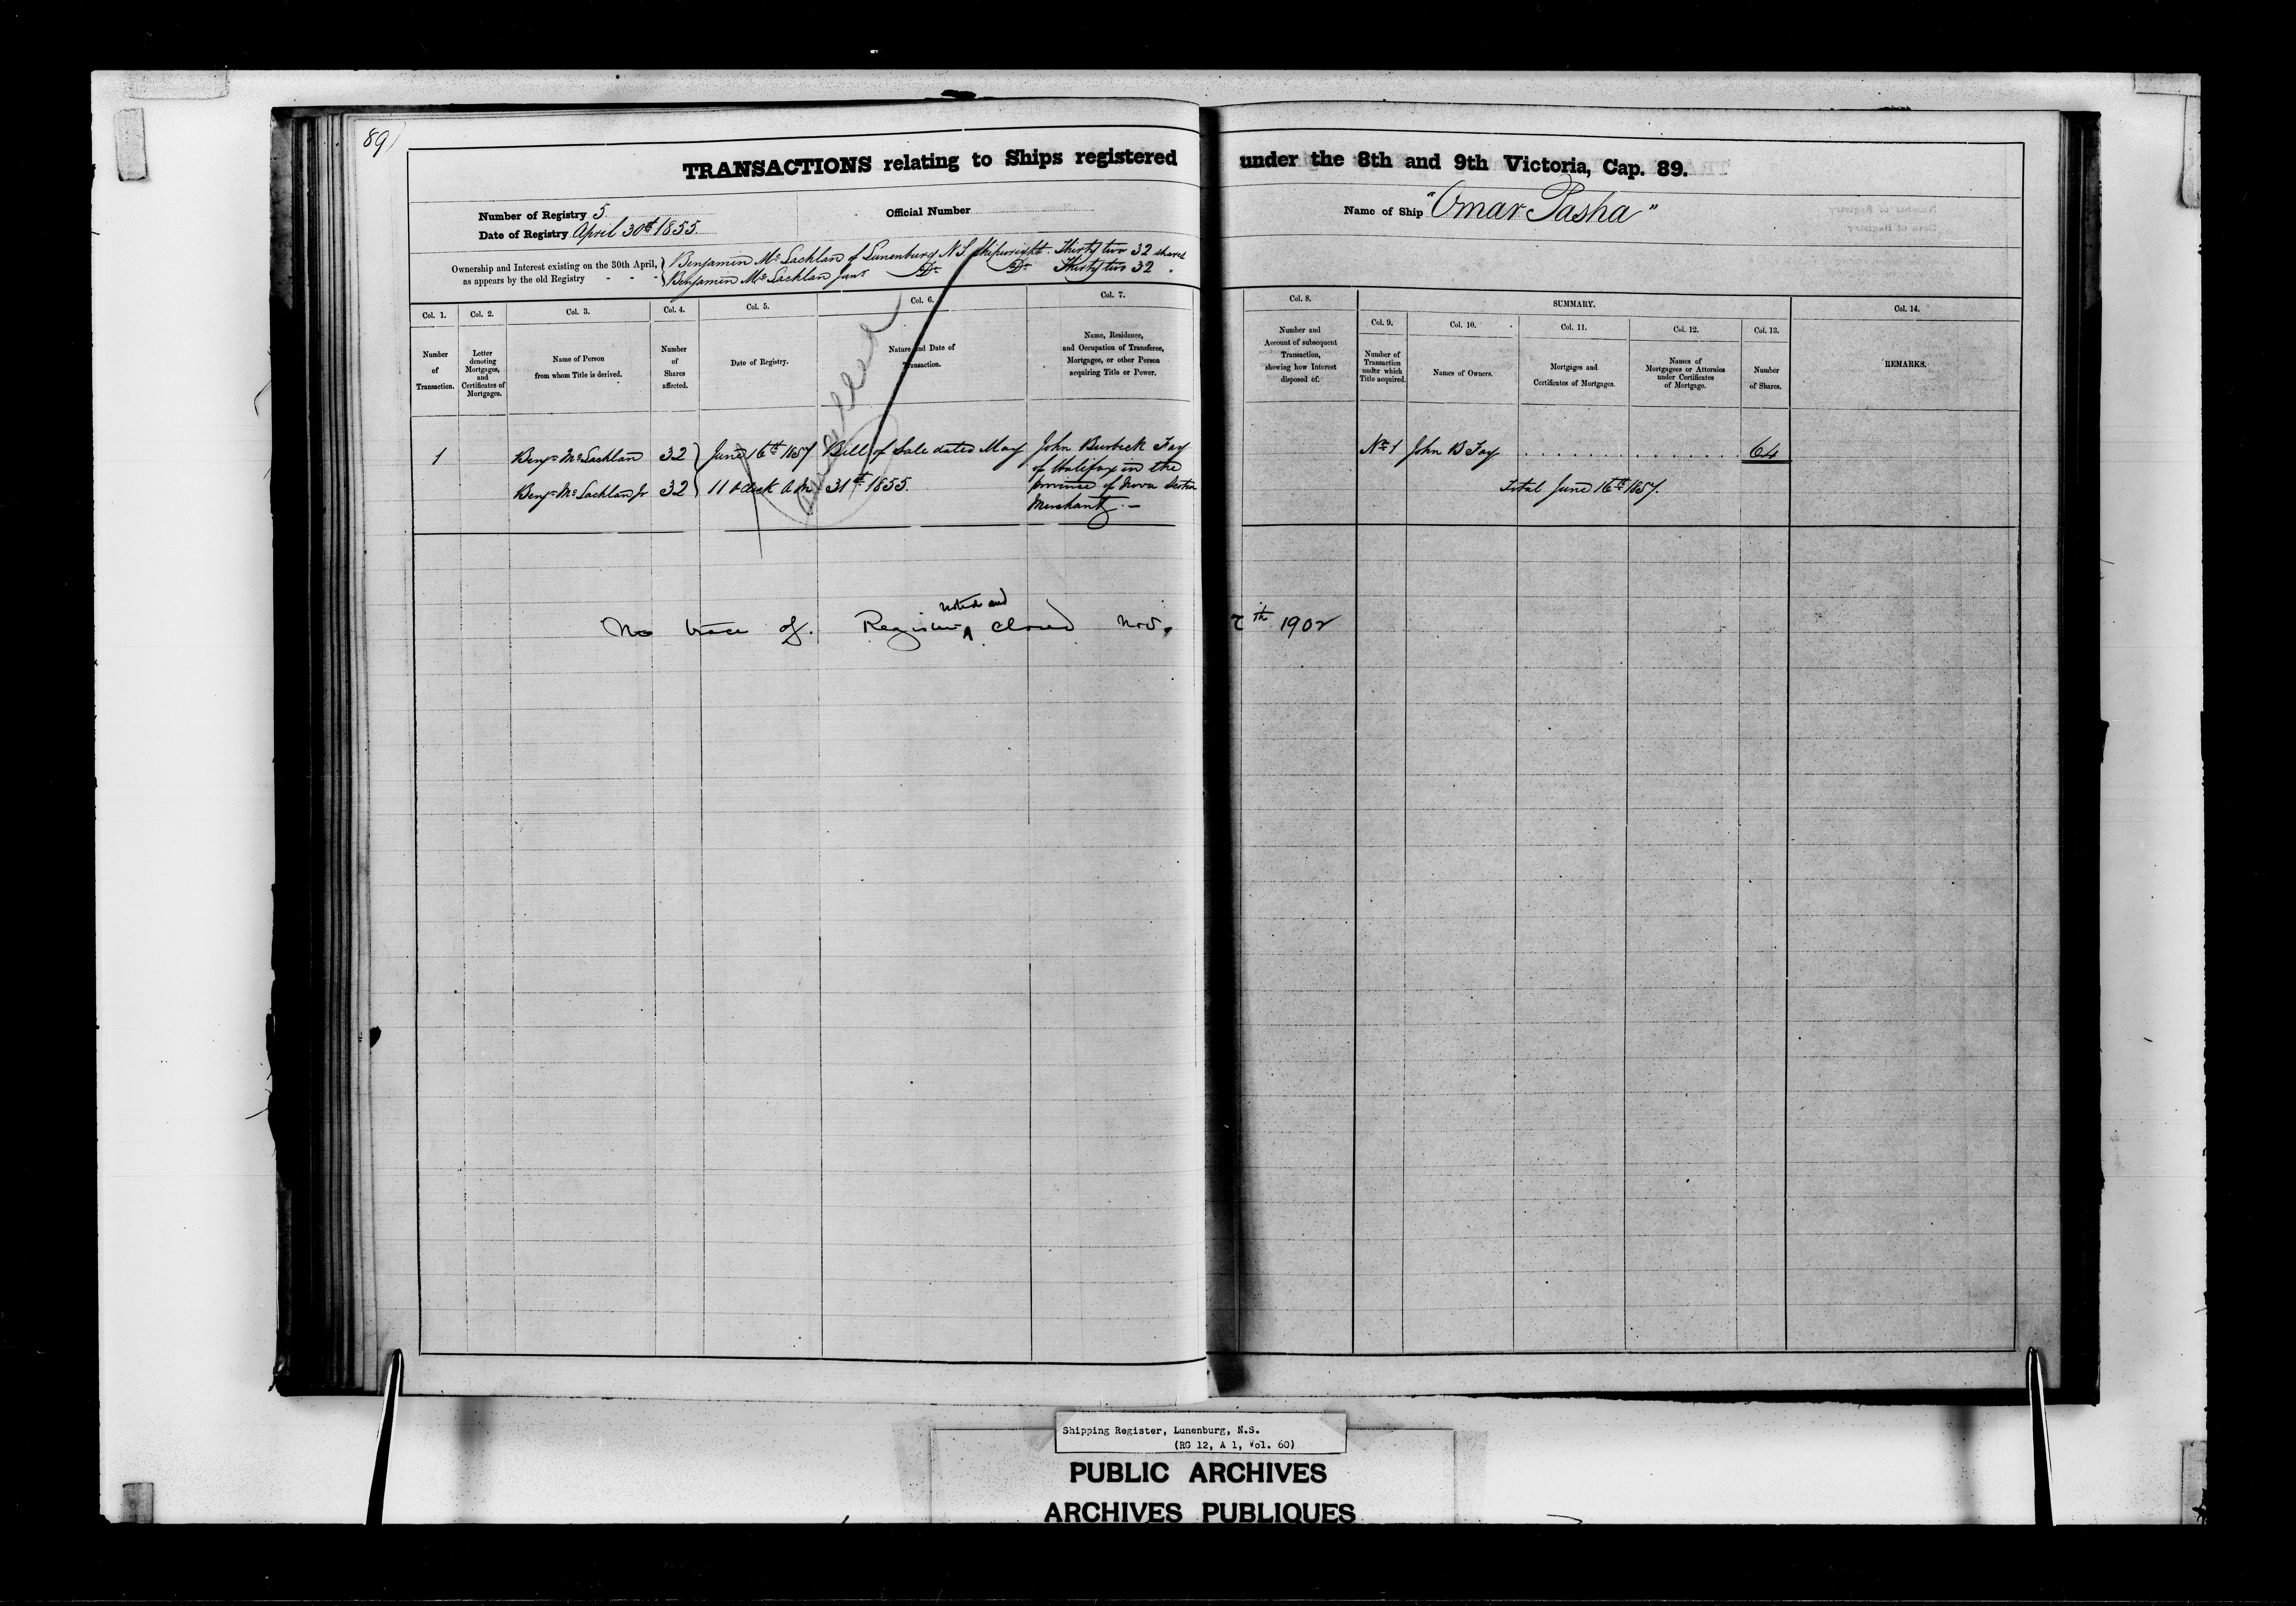 89)
TRANSACTIONS relating to Ships registered under the 8th and 9th Victoria, Cap. 89.
Number of Registry 5.
Official Number
Name of Ship "Omar Pasha"
Date of Registry April 30th 1855.
Ownership and Interest existing on the 30th April, as appears by the old Registry - - -
Benjamin McLachlan of Lunenburg N.S. Shipwright. Thirty two 32 shares
Benjamin McLachlan Junr Do Do Thirty two 32 "
Col. 1. Number of Transaction.
Col. 2. Letter denoting Mortgages, and Certificates of Mortgages.
Col. 3. Name of Person from whom Title is derived.
Col. 4. Number of Shares affected.
Col. 5. Date of Registry.
Col. 6. Nature and Date of Transaction.
Col. 7. Name, Residence, and Occupation of Transferee, Mortgagee, or other Person acquiring Title or Power.
Col. 8. Number and Account of subsequent Transaction, showing how Interest disposed of.
SUMMARY.
Col. 9. Number of Transaction under which Title acquired.
Col. 10. Names of Owners.
Col. 11. Mortgages and Certificates of Mortgages.
Col. 12. Names of Mortgagees or Attornies under Certificates of Mortgage.
Col. 13. Number of Shares.
Col. 14. REMARKS.
1
Benjn McLachlan 32
Benjn McLachlan Jr 32
June 16th 1857
11 o'clock A.M
Bill of Sale dated May
31st 1855.
John Burbeck Fay
of Halifax in the
province of Nova Scotia
Merchant. —
No 1 John B Fay . . . . . . . . . . . . . . 64
Total June 16th 1857.
Cancelled
noted and
No trace of. Registry ^ closed Nov. 7th 1902
Shipping Register, Lunenburg, N.S.
(RG 12, A 1, Vol. 60)
PUBLIC ARCHIVES
ARCHIVES PUBLIQUES